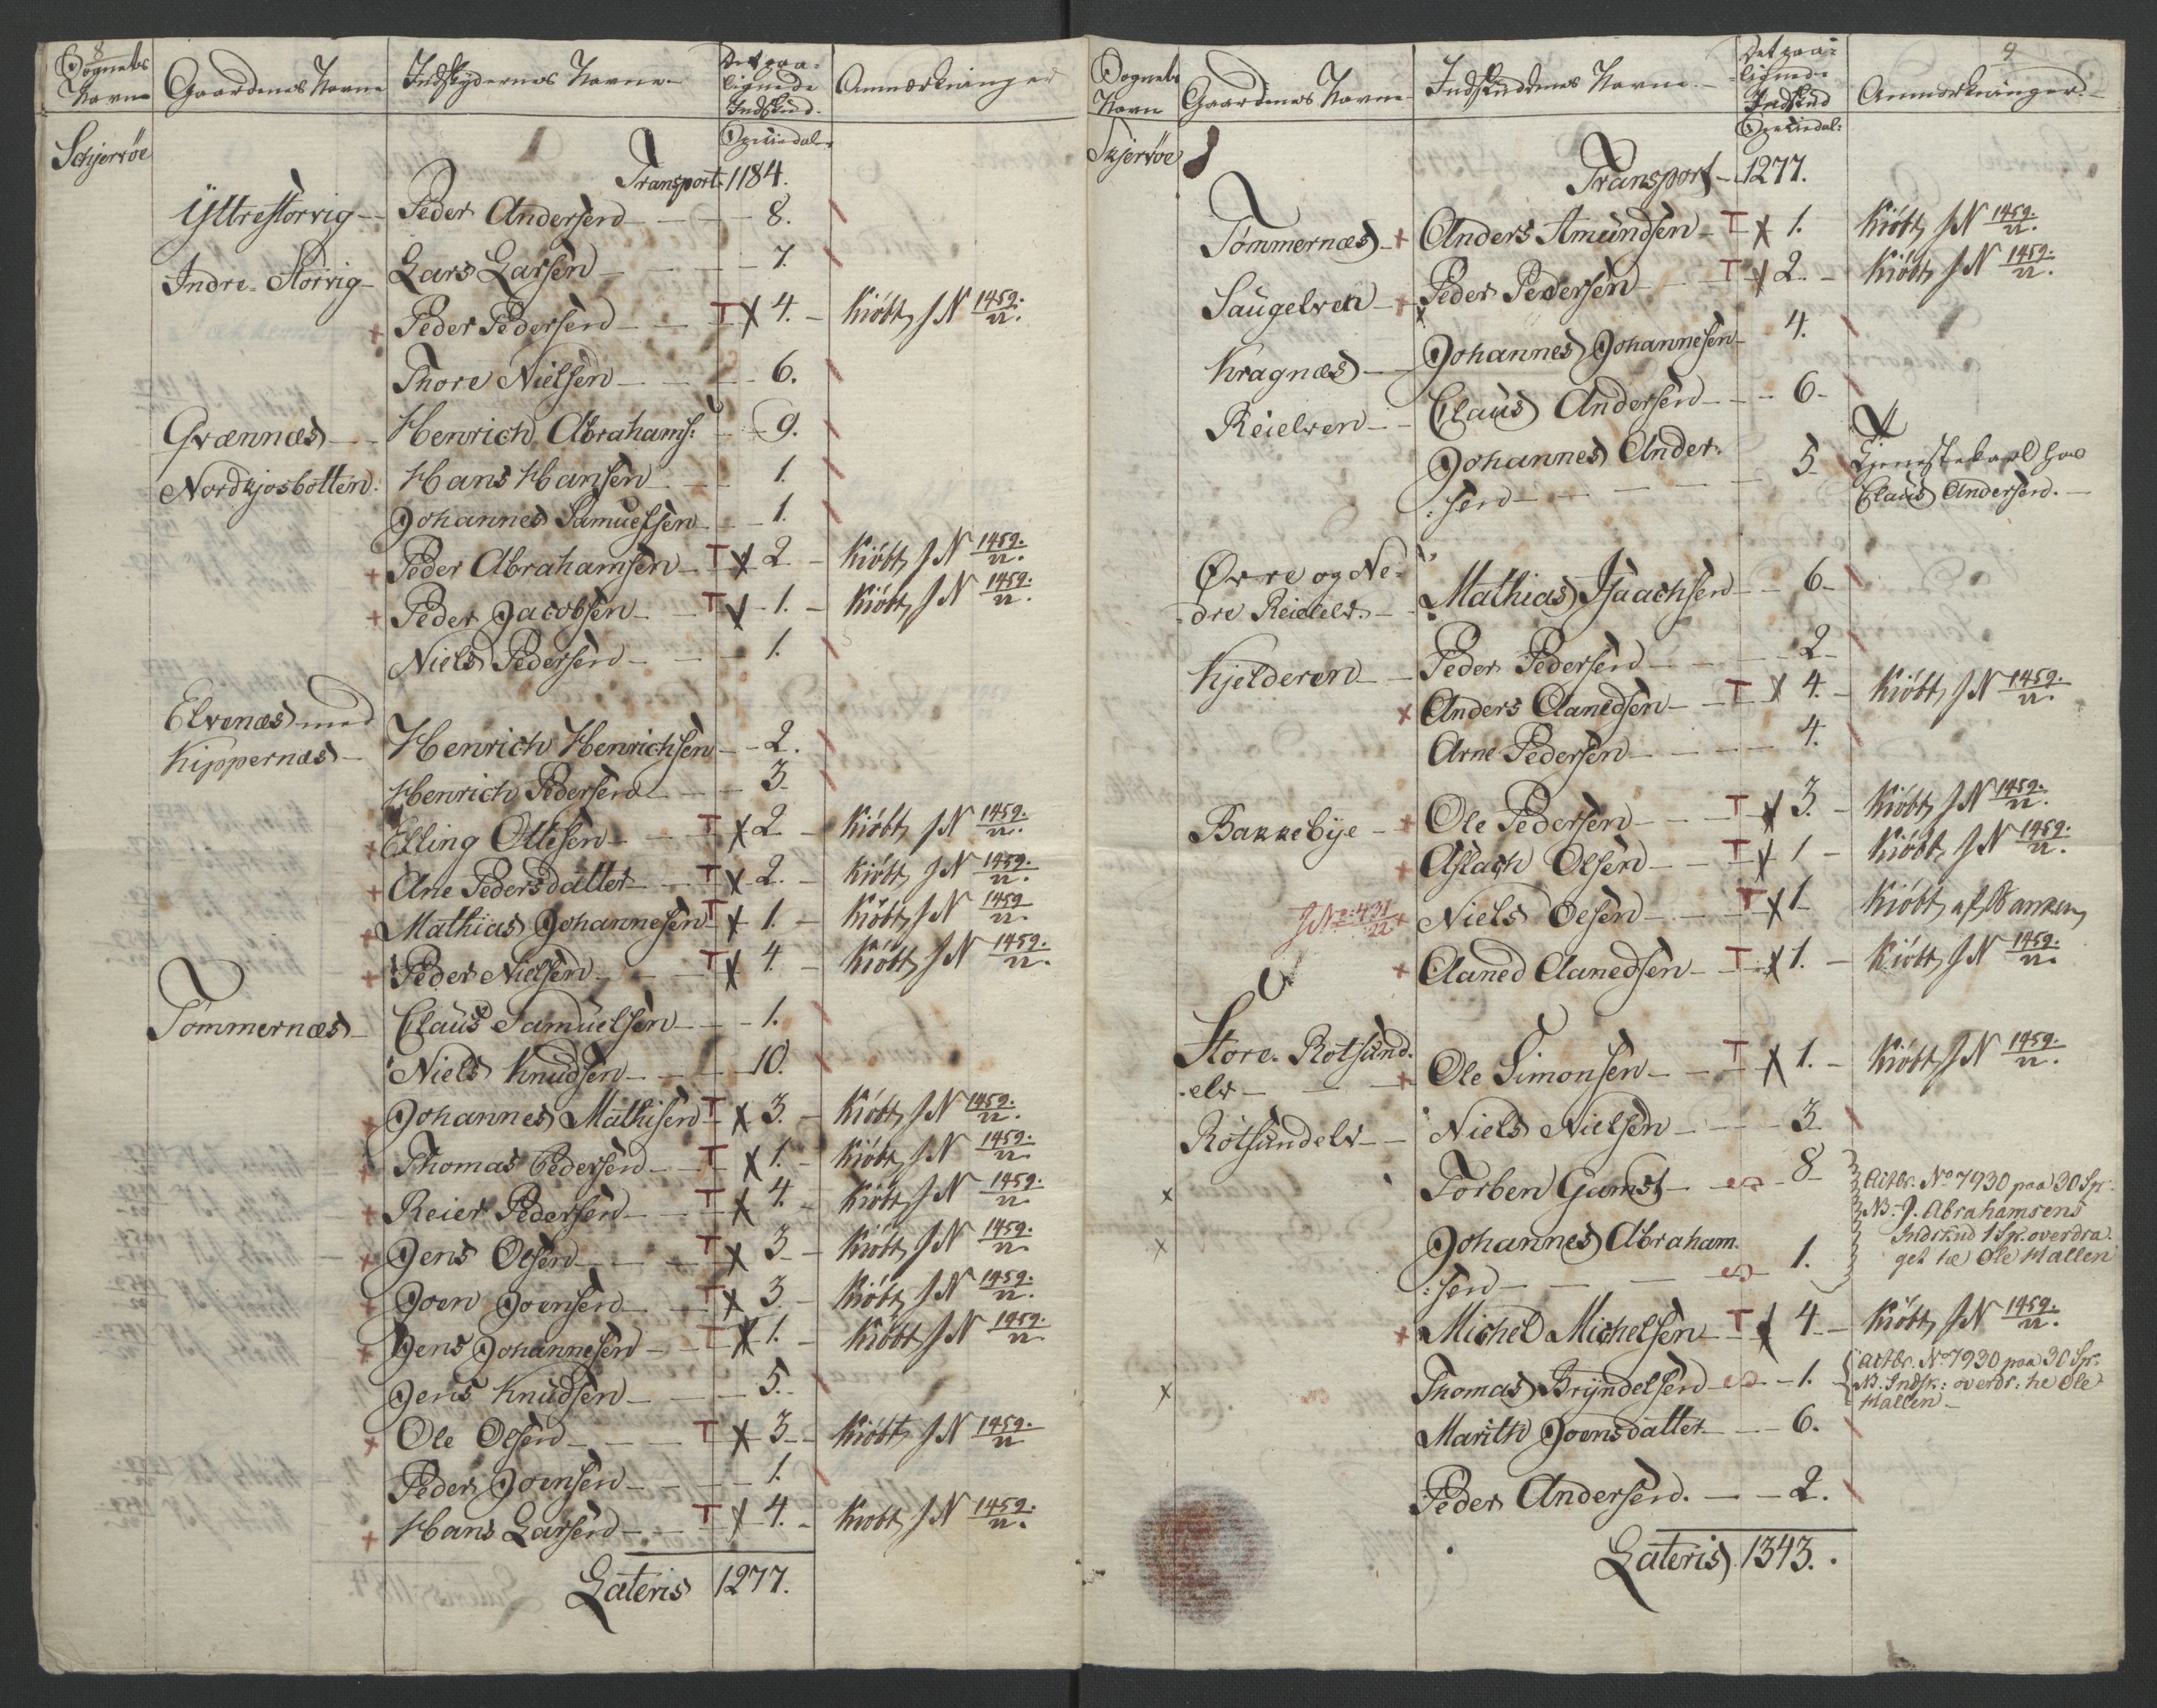 8
Sognets Navn Gaardenes Navne Indskydernes Navne Det paalignede Indskud Anmærkninger
Speciedal:
Schjervöe
Transport 1184.
Yttrestorvig Peder Andersen 8.
Indre Storvig Lars Larsen 7.
+ Peder Pedersen T X 4. Kiöbt, J N 1459./22.
Thore Nielsen 6.
Qvænnæs Henrich Abrahams: 9.
Nordkjosbotten: Hans Hansen 1.
Johannes Samuelsen 1.
+ Peder Abrahamsen T X 2 Kiöbt J N 1459./22.
+ Peder Jacobsen T X 1. Kiöbt J N 1459./22.
Niels Pedersen 1.
Elvenæs med
Kippernæs Henrich Henrichsen 2.
Henrich Pedersen 3
+ Elling Ottesen T X 2 Kiöbt J N 1459./22.
+ Ane Pedersdatter T X 2. Kiöbt, J N 1459./22.
+ Mathias Johannesen T X 1. Kiöbt, J N 1459/22.
+ Peder Nielsen T X 4. Kiöbt, J N 1459./22.
Tömmernæs Claus Samuelsen 1.
Niels Knudsen 10.
+ Johannes Mathisen T X 3. Kiöbt, J N 1459./22.
+ Thomas Pedersen T X 1. Kiöbt, J N 1459./22.
+ Reier Pedersen T X 4. Kiöbt J N 1459./22
+ Jens Olsen T X 3 Kiöbt J N 1459./22
+ Joen Joensen T X 3. Kiöbt J N 1459./22.
+ Jens Johannesen T X 1. Kiöbt J N 1459./22
Jens Knudsen 5.
+ Ole Olsen T X 3 Kiöbt J N 1459./22
Peder Joensen 1.
+ Hans Larsen T X 4. Kiöbt J N 1459./22.
Lateris 1277.
9
Sognets Navn Gaardenes Navne Indskudernes Navne Det paalignede Indskud Anmærkninger
Speciedal:
Skjervöe
Transport 1277.
Tömmernæs + Anders Amundsen T X 1. Kiöbt, J N 1459./22.
Saugelven + Peder Pedersen T X 2. Kiöbt J N 1459./22.
Kragnæs Johannes Johannesen 4.
Reielven Claus Andersen 6
Johannes Ander: 5 Tjenestekarl hos
:sen Claus Andersen.
Övre og Ne:
dre Reielelv. Mathias Isaachsen 6
Kjelderen Peder Pedersen 2
+ Anders Aanedsen T X 4. Kiöbt, J N 1459./22.
Arne Pedersen 4.
Bakkebÿe + Ole Pedersen T X 3. Kiöbt J N 1459./22.
+ Aslach Olsen T X 1 Kiöbt J N 1459./22.
J N 2431/22 + Niels Olsen T X 1 Kiöbt af Banken
+ Aaned Aanedsen T X 1. Kiöbt J N 1459./22.
Store Rotsund:
elv + Ole Simonsen T X 1. Kiöbt, J N 1459./22.
Rotsundelv Niels Nielsen 3
x Torben Gamst 8 Actbr. No 7930 paa 30 Spr.
NB. J. Abrahamsens
x Johannes Abraham: Indskud 1 Sp. overdra-
:sen 1. get til Ole Hallen
+ Michel Michelsen T X 4 Kiöbt, J N 1459./22.
x Thomas Bryndelsen 1. Actbr. No 7930 paa 30 Spr.
NB. Indsk: overdr: til Ole
Hallen
Marith Joensdatter 6.
Peder Andersen. 2.
Lateris 1343.